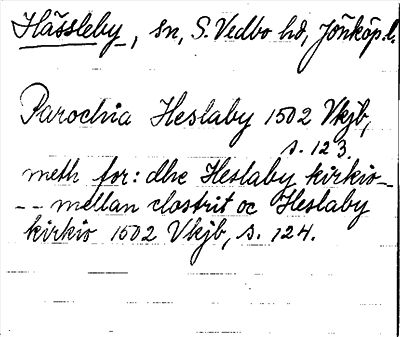 Hässleby, sn, S. Vedbo hd, Jönköp.l.
Parochia Heslaby 1502 Vkjb,
s. 123.
meth for: dhe Heslaby kirkio_
_ _ mellan clostrit oc Heslaby
kirkio 1502 Vkjb, s. 124.